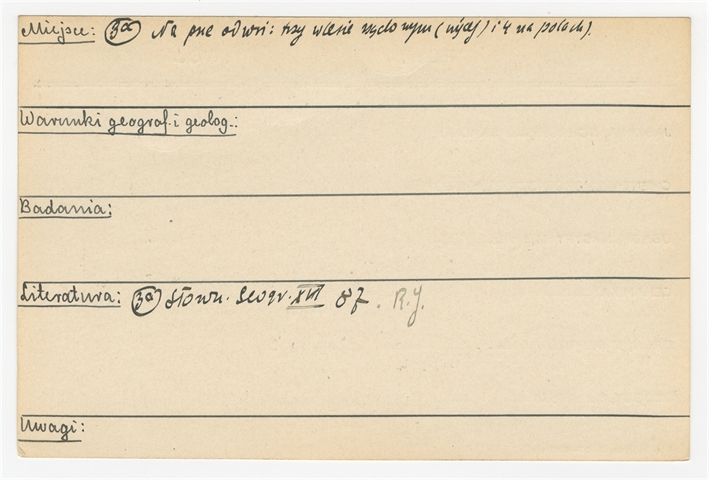 Miejsce: 3a Na pne odwsi: trzy w lesie rządowym (wyżej) i 4 na polach).
Warunki geograf. i geolog.:
Badania:
Literatura: 3a Słown. Geogr. XVI 87. R.J.
Uwagi: